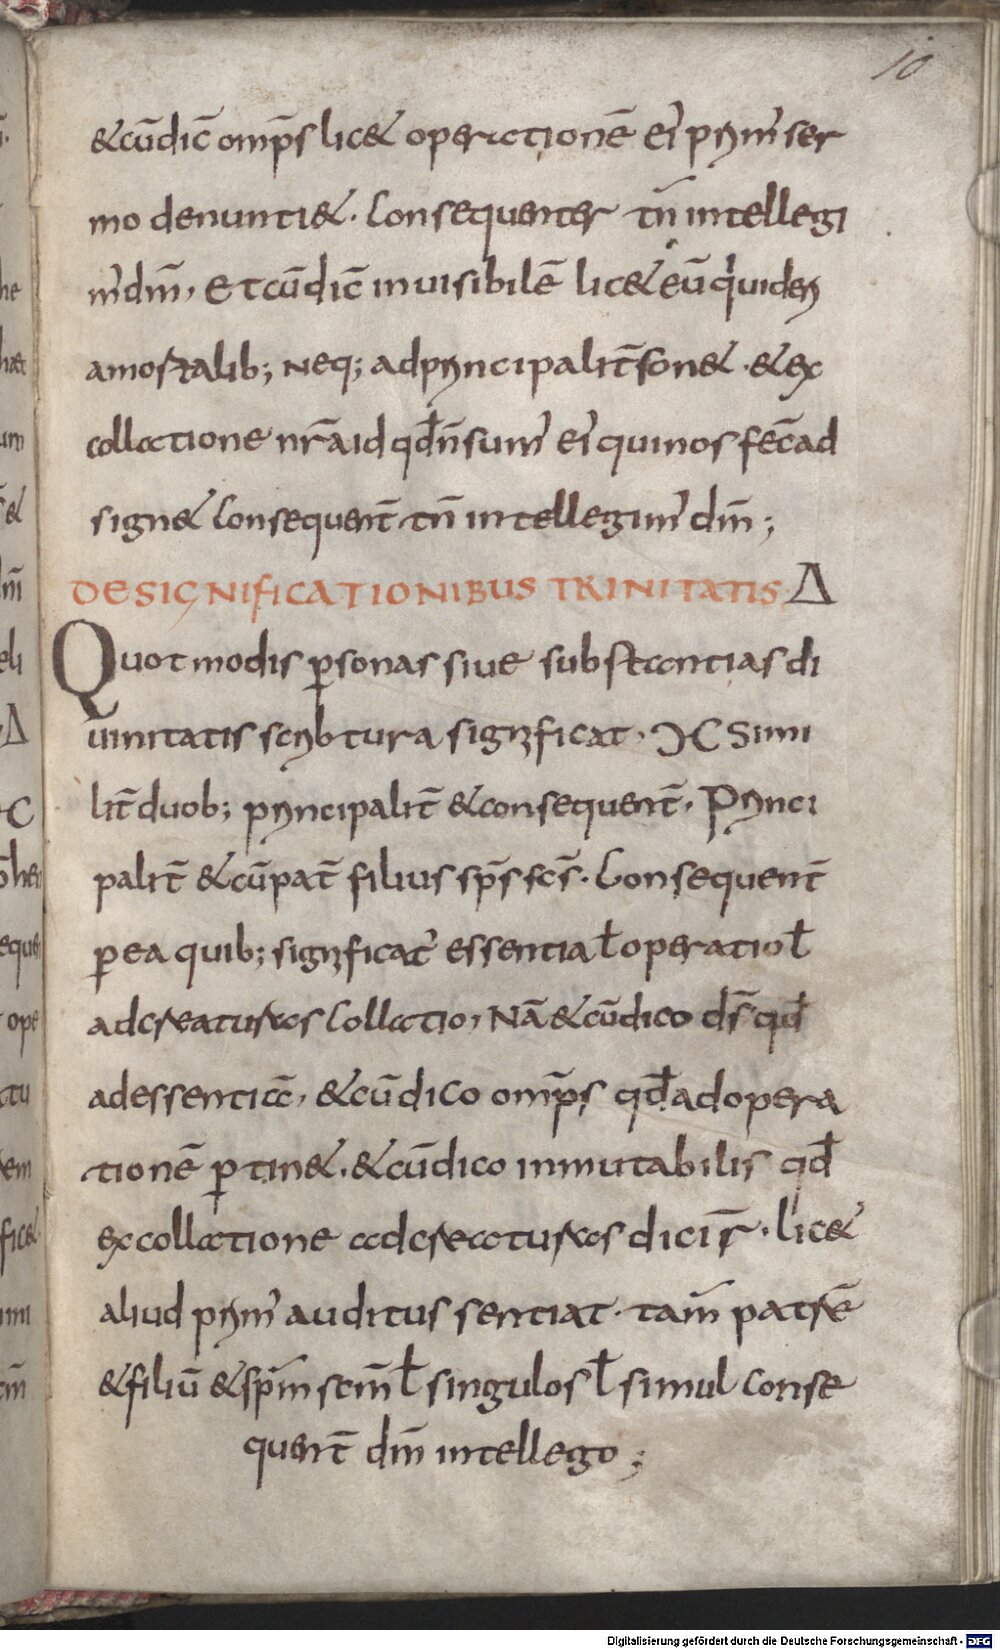 10
&cū dic̄ omp̄s lic& operationē ei' prim' ser
mo denunti&. Consequenter tn̄ intellegi
m' dm̄, Et cū dic̄ inuisibilē lic& eū q' uider
a mortalib; neq; ad principalit̄ son&. & ex
collatione nr̄a id qđ n̄ sum' ei' qui nos fec̄ ad
sign& Consequent̄ tn̄ intellegim' dm̄;
DE SIGNIFICATIONIBUS TRINITATIS Δ
Quot modis p̱sonas siue substantias di
uinitatis scribtura significat. Ɔ C Simi
lit̄ duob; principalit̄ & consequent̄. Princi
palit̄ & cū pat̄ filius sp̄s sc̄s. Consequent̄
p̱ ea quib; significat' essentia ł operatio ł
ad creaturas Collatio, Nā & cū dico ds̄ qđ
ad essentiā, & cū dico omp̄s qđ ad opera
tionē p̱tin&. & cū dico inmutabilis qđ
ex collatione ad creaturas dicit̄r. lic&
aliud prim' auditus sentiat. tam̄ patrē
& filiū & spm̄ scm̄ ł singulos ł simul Conse
quent̄ dm̄ intellego;
Digitalisierung gefördert durch die Deutsche Forschungsgemeinschaft - DFG